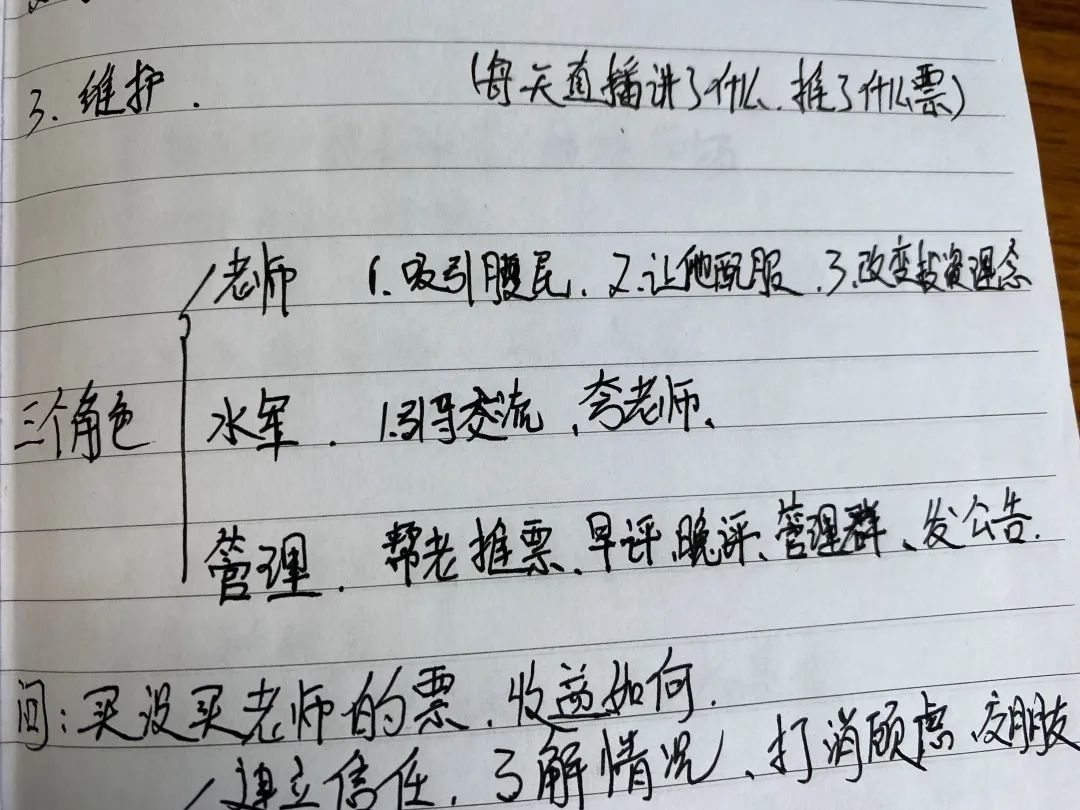 3、维护. (每天直播讲了什么.推了什么票)
老师 1.吸引股民. 2.让他配服.3.改变投资理念
三个角色
水军. 1.引导交流、夸老师、
管理. 帮老推票、早评、晚评、管理群、发公告.
问:买没买老师的票.收益如何.
建立信任.了解情况、打消顾虑 交朋友